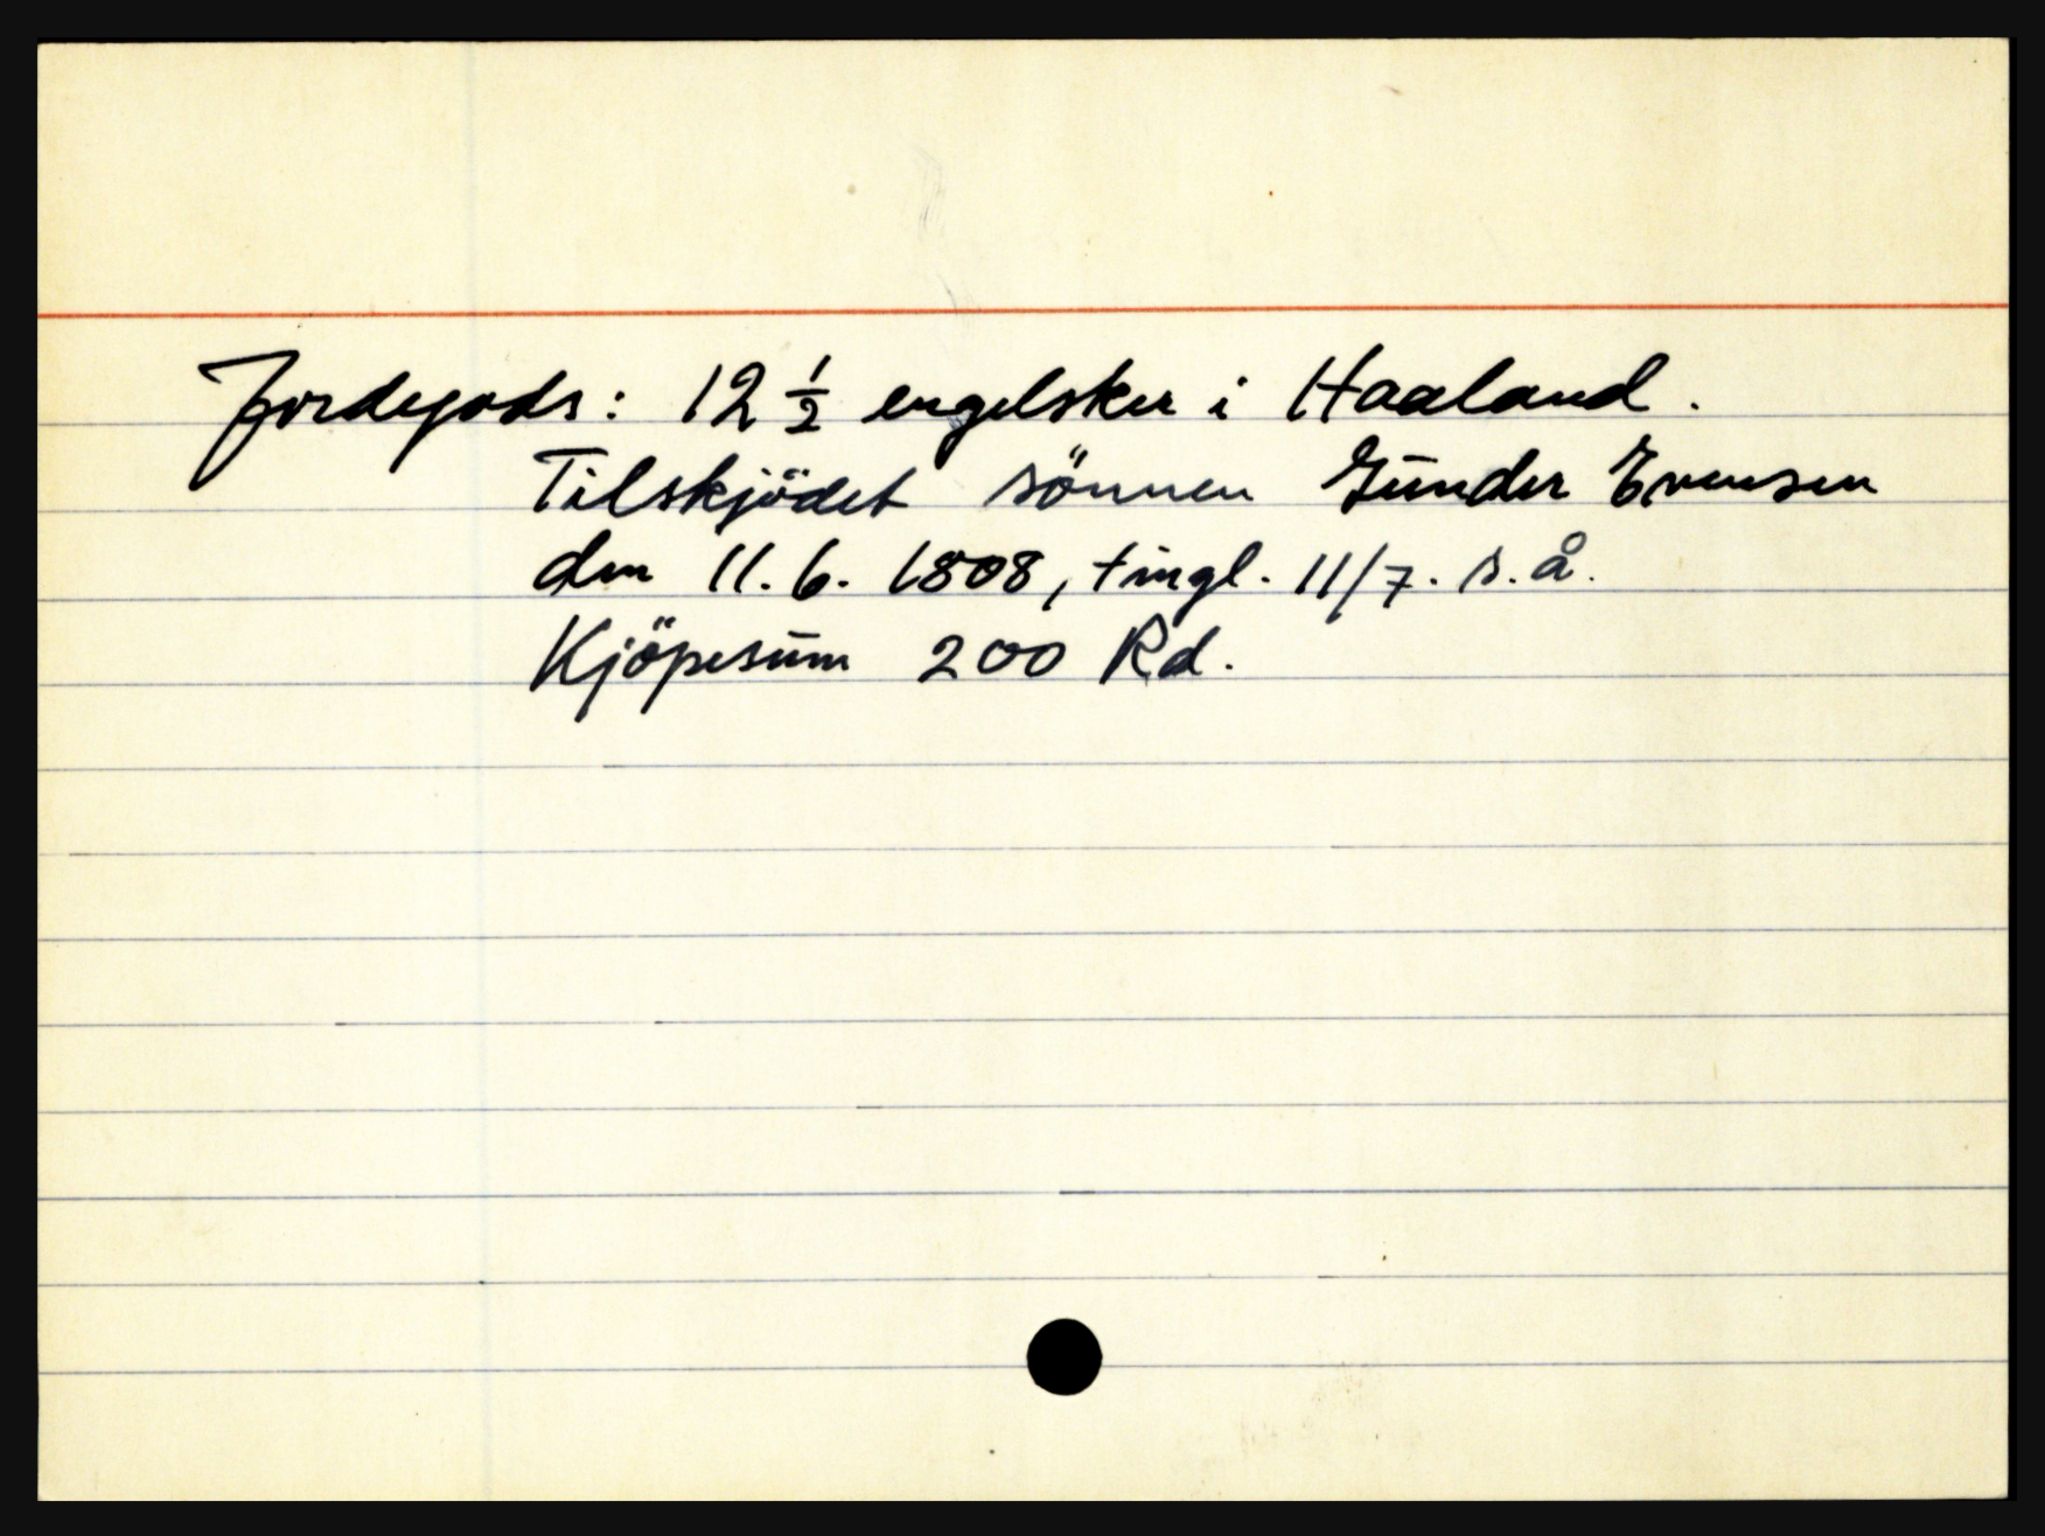 Jordegods: 12 ½ engelsker i Haaland.
Tilskjödet sönnen Gunder Evensen
den 11.6. 1808, tingl. 11/7. s.å.
Kjöpesum 200 Rd.